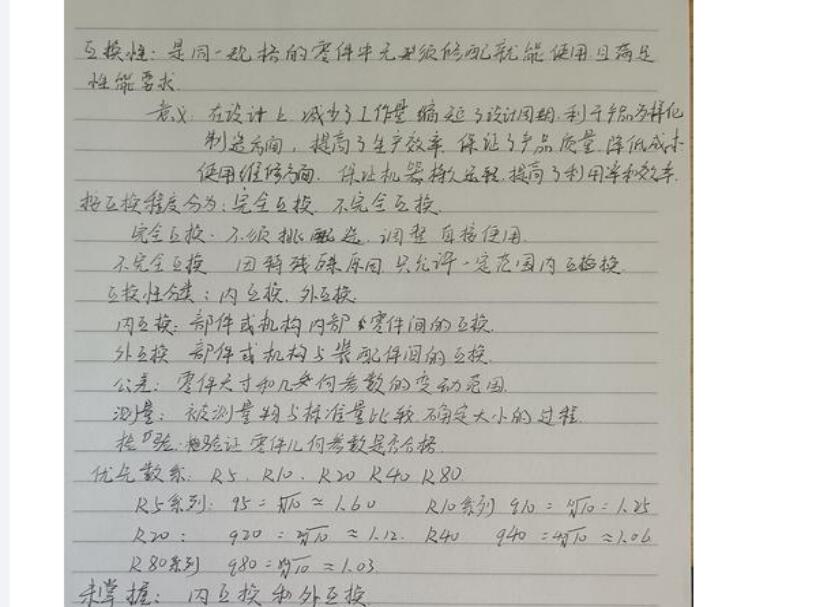 互换性：是同一规格的零件中无须修配就能使用且满足
性能要求.
意义：在设计上,减少了工作量 缩短了设计周期.利于产品多样化
制造方面，提高了生产效率.保证了产品质量.降低成本
使用维修方面.保证机器持久运转,提高了利用率和效率.
按互换程度分为：完全互换.不完全互换.
完全互换.不须挑配选.调整 直接使用.
不完全互换 因特殊原因.只允许一定范围内互换.
互换性分类：内互换.外互换.
内互换：部件或机构内部零件间的互换.
外互换 部件或机构与装配件间的互换.
公差：零件尺寸和几何参数的变动范围.
测量：被测量物与标准量比较.确定大小的过程.
检验：验证零件几何参数是否合格.
优先数系：R5、R10、R20 R40 R80.
R5系列：q5=⁵√10≈1.60 R10系列 q10=¹⁰√10=1.25
R20：q20=²⁰√10≈1.12. R40 q40=⁴⁰√10≈1.06
R80系列 q80=⁸⁰√10≈1.03.
未掌握：内互换和外互换